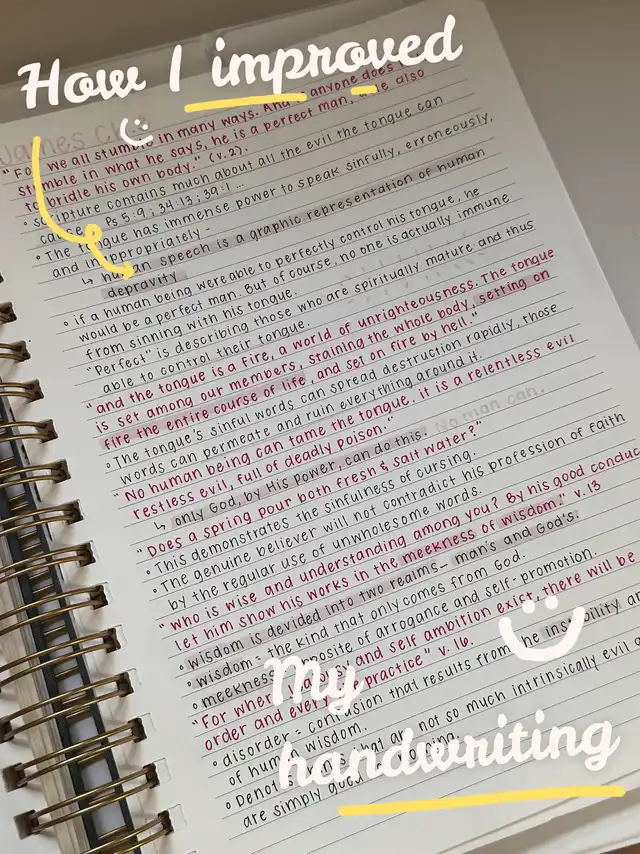 How I improved
James Ch
"For we all stumble in many ways. And anyone does
stumble in what he says, he is a perfect man, able also
to bridle his own body." (v.2).
◦ scripture contains much about all the evil the tongue can
cause - Ps 5:9 ; 34:13 ; 39:1 ...
◦ The tongue has immense power to speak sinfully, erroneously,
and inappropriately -
↳ speech is a graphic representation of human
depravity
◦ if a human being were able to perfectly control his tongue, he
would be a perfect man. But of course, no one is actually immune
from sinning with his tongue.
"Perfect" is describing those who are spiritually mature and thus
able to control their tongue.
"and the tongue is a fire, a world of unrighteousness. The tongue
is set among our members, staining the whole body, setting on
fire the entire course of life, and set on fire by hell."
◦ The tongue's sinful words can spread destruction rapidly, those
words can permeate and ruin everything around it.
"No human being can tame the tongue. it is a relentless evil
restless evil, full of deadly poison."
No man can.
↳ only God, by His Power, can do this.
"Does a spring pour both fresh & salt water?"
◦ This demonstrates the sinfulness of cursing.
◦ The genuine believer will not contradict his profession of faith
by the regular use of unwholesome words.
"who is wise and understanding among you? By his good conduc
let him show his works in the meekness of wisdom." v.13
◦ wisdom is devided into two realms- man's and God's.
◦ wisdom- the kind that only comes from God.
◦ meekness- opposite of arrogance and self-promotion.
"For where and self ambition exist, there will be
order and every practice" v. 16.
◦ disorder = confusion that results from the instability an
of human wisdom.
◦ Denot that are not so much intrinsically evil a
are simply good
My
handwriting